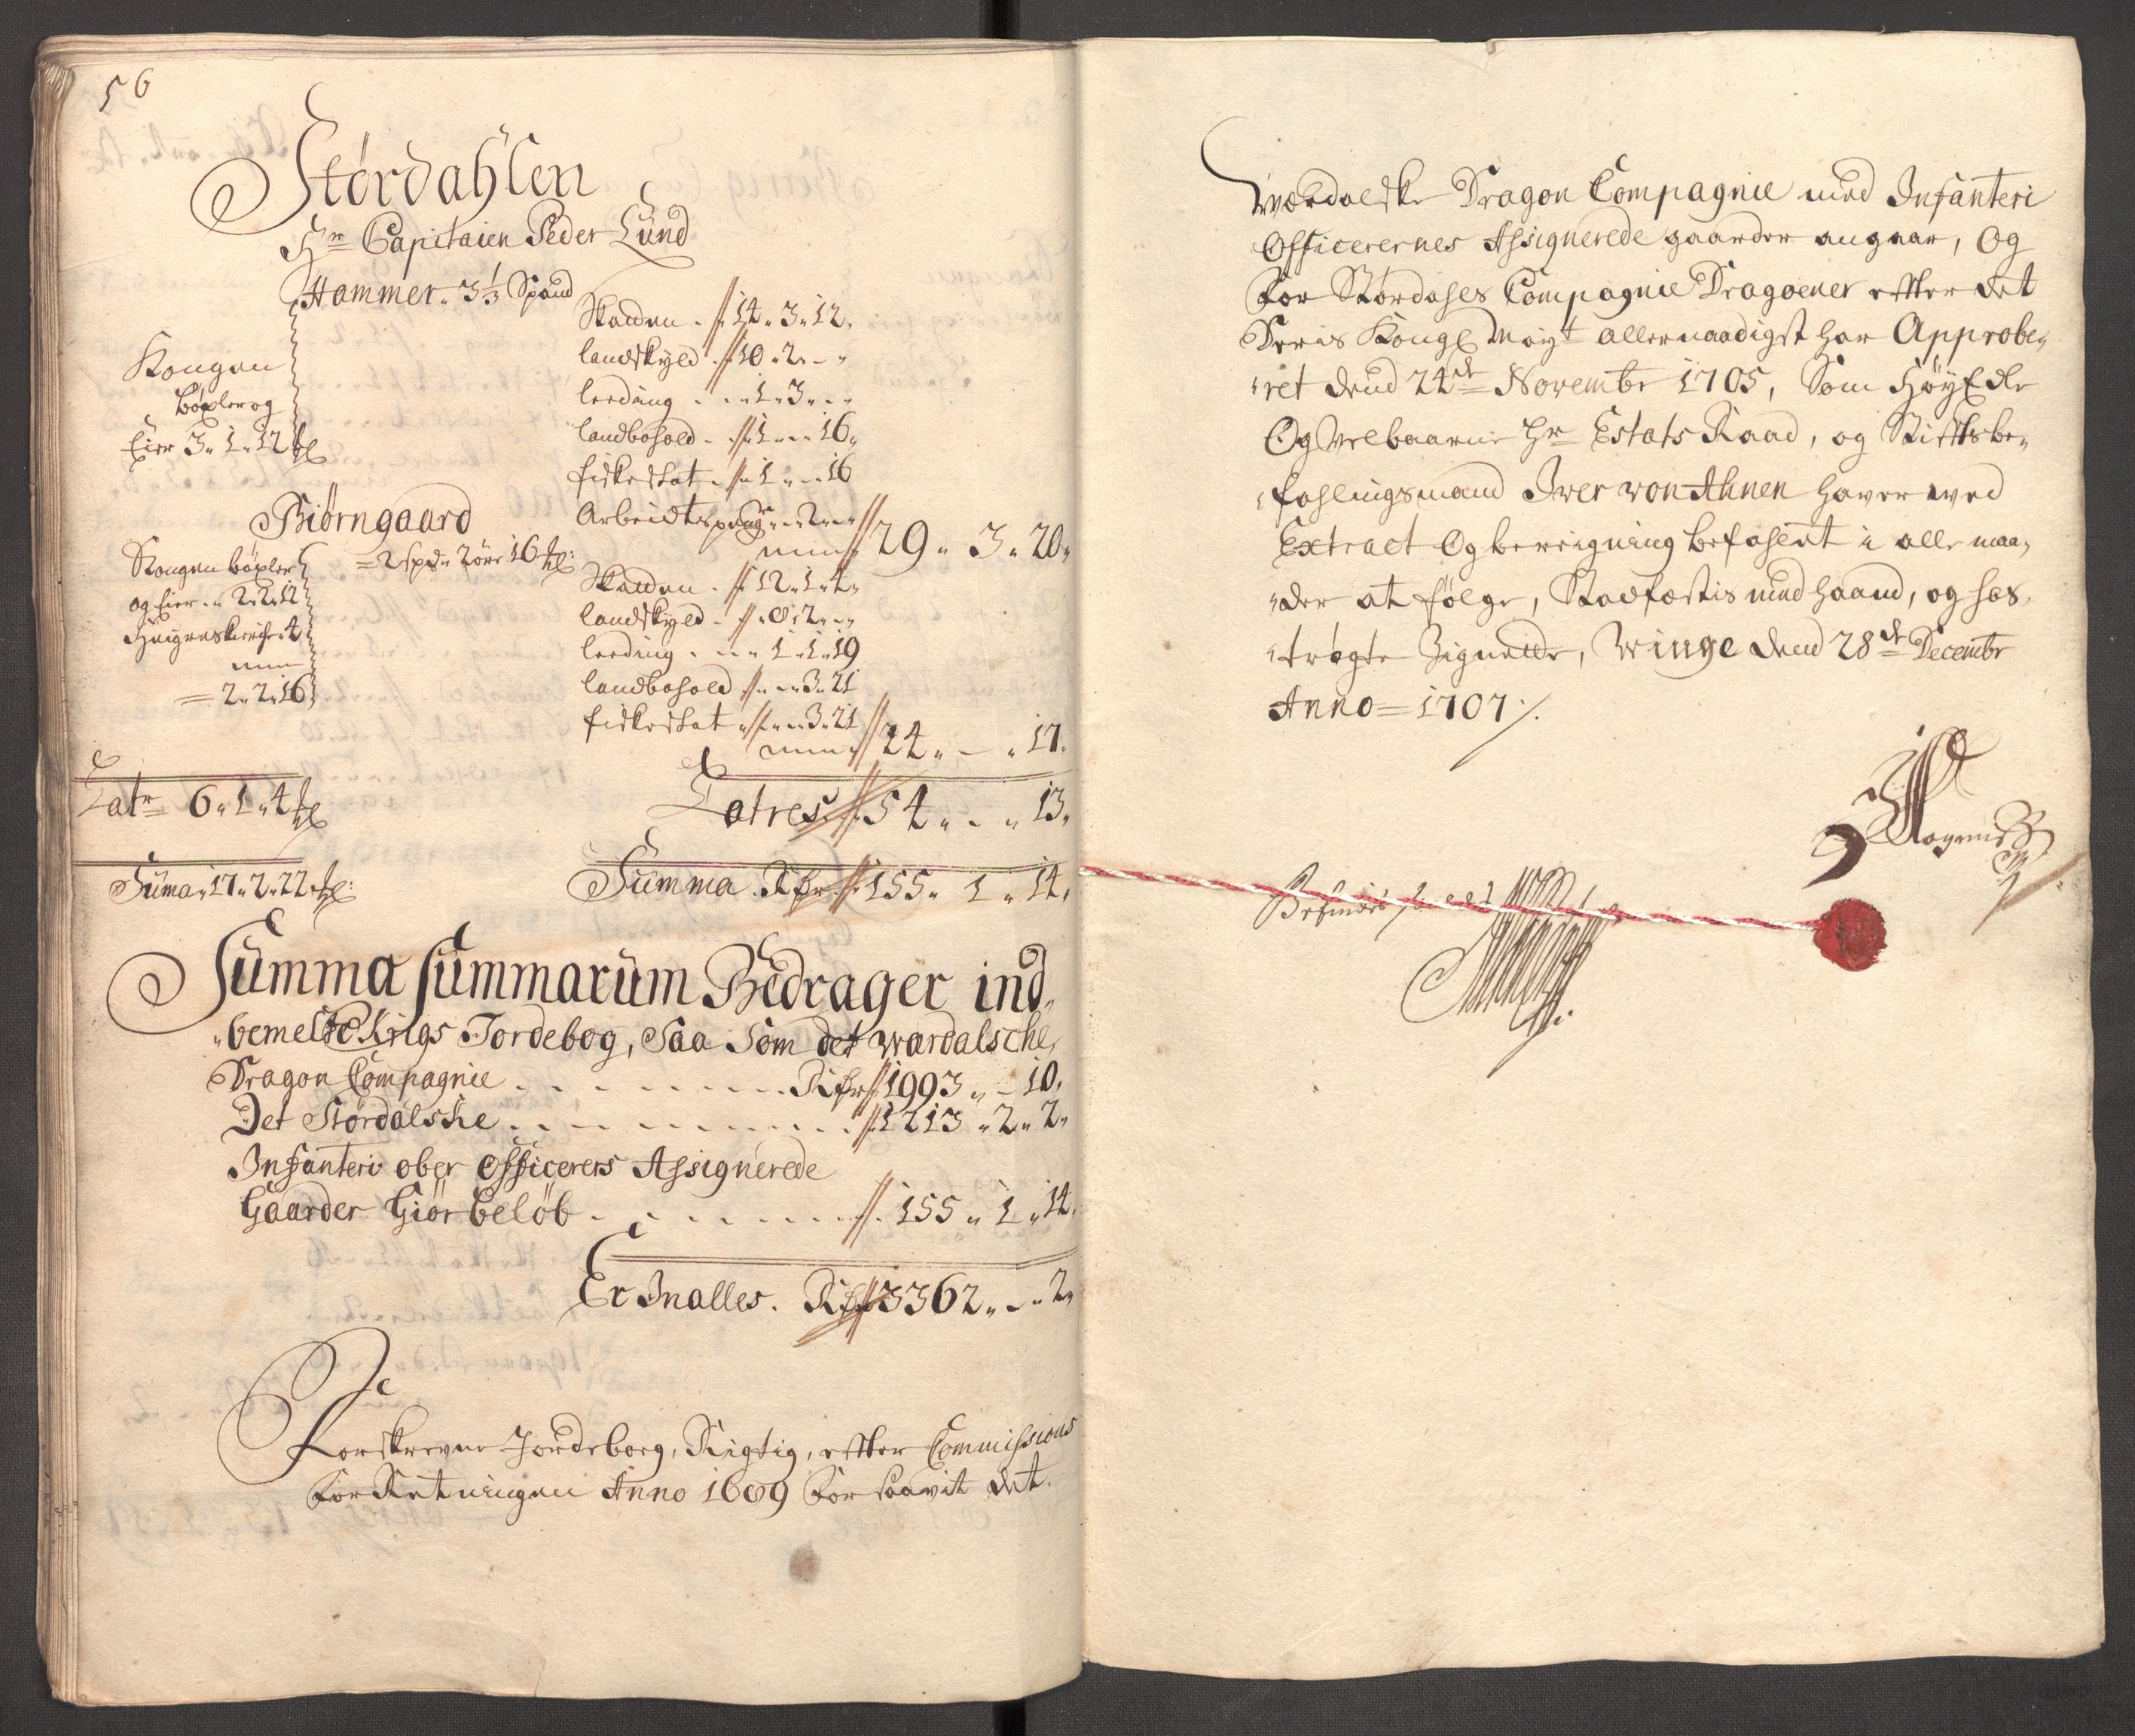 56
Størdahlen
Hr Capitaien Peder Lund
Hammer. 3 1/3 Spand
Kongen
bøxler og
Eier 3. 1. 12 ℔
Skatten . 14. 3. 12.
landskyld . 10. 2. -
leeding . . 1. 3. -
landbohold . 1. - 16.
fiskeskat . 1. - 16
Arbeidtspeng . - 2. -
29. 3. 20.
Biørngaard
= 2 spd 2 øre 16 ℔:
Kongen bøxler
og Eier .. 2. 2. 12
= 2. 2. 16
Skatten . 12. 1. 4.
landskyld . 8. 2. -
leeding . . 1. 1. 19
landbohold . - 3. 21
fiskeskat . - 3. 21
24. - . 17.
Latr 6. 1. 4 ℔
Latres 54. - . 13.
Suma. 17. 2. 22 ℔:
Summa Rdr 155. 1. 14.
Summa Summarum Bedrager ind„
„bemelte Krigs Jordebog, Saa Som det wardalsche,
Dragon Compagnie . . . . . . Rdr 1993. - 10.
Det Størdalske . . . . . . . 1213. 2. 2.
Infanteri ober officerers Assignerede
Gaarder Giør beløb . . . . . . 155. 1. 14.
Er Jnalles. Rdr 3362. - . 2.
Forskrevne Jordebog, Rigtig, efter Commissions
For Retningen Anno 1689 for saavit det.
Wærdalske Dragon Compagnie med Infanteri
Officerernes Assignerede gaarder angaar, Og
for Størdahls Compagnie Dragoener efter det
Deris Kongl Mayt allernaadigst har Approbe„
„ret dend 24de Novembr 1705, Som Høy Edle
Og Velbaarne Hr Estats Raad, og Stiftsbe„
„fahlingsmand Iver von Ahnen haver ved
Extract Og bereigning befahlet i alle maa„
„der at følge, Stadfæstis med haand, og hos„
„trøgte Zignette, Winge dend 28de Decembr
Anno = 1707 ⁒